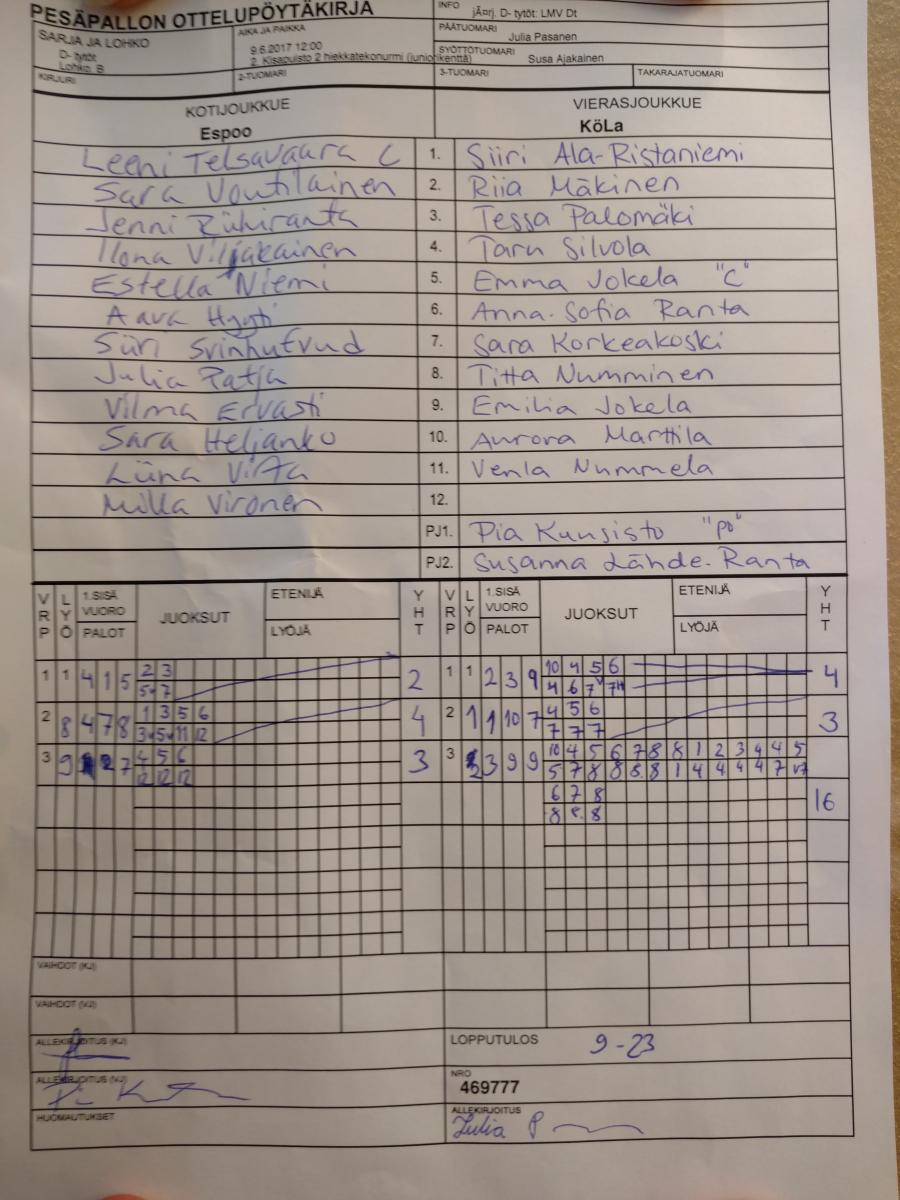 PESÄPALLON OTTELUPÖYTÄKIRJA
INFO
jÃ¤rj. D- tytöt: LMV Dt
SARJA JA LOHKO
D- tytöt
Lohko, B
AIKA JA PAIKKA
9.6.2017 12:00
2. Kisapuisto 2 hiekkatekonurmi (juniorikenttä)
PÄÄTUOMARI
Julia Pasanen
SYÖTTÖTUOMARI
Susa Ajakainen
KIRJURI
2-TUOMARI
3-TUOMARI
TAKARAJATUOMARI
KOTIJOUKKUE
Espoo
VIERASJOUKKUE
KöLa
Leeni Telsavaara C 1. Siiri Ala-Ristaniemi
Sara Voutilainen 2. Riia Mäkinen
Jenni Riihiranta 3. Tessa Palomäki
Ilona Viljakainen 4. Taru Silvola
Estella Niemi 5. Emma Jokela "C"
Aava Hyyti 6. Anna-Sofia Ranta
Siiri Svinhufvud 7. Sara Korkeakoski
Julia Patja 8. Titta Numminen
Vilma Ervasti 9. Emilia Jokela
Sara Heljanko 10. Aurora Marttila
Liina Virta 11. Venla Nummela
Milla Vironen 12.
PJ1. Pia Kuusisto "po"
PJ2. Susanna Lähde-Ranta
VRP LYÖ 1.SISÄ VUORO PALOT JUOKSUT ETENIJÄ LYÖJÄ YHT VRP LYÖ 1.SISÄ VUORO PALOT JUOKSUT ETENIJÄ LYÖJÄ YHT
1 1 4 1 5 2 3 2 1 1 2 3 9 10 4 5 6 4
5 7 4 6 7 7
2 8 4 7 8 1 3 5 6 4 2 1 1 10 7 4 5 6 3
3 5 11 12 7 7 7
3 9 2 7 4 5 6 3 3 3 9 9 10 4 5 6 7 8 8 1 2 3 4 4 5
12 12 12 5 7 8 8 8 8 1 4 4 4 4 7
6 7 8 16
8 8 8
VAIHDOT (KJ)
VAIHDOT (VJ)
ALLEKIRJOITUS (KJ)
LOPPUTULOS 9-23
ALLEKIRJOITUS (VJ)
NRO
469777
HUOMAUTUKSET
ALLEKIRJOITUS
Julia P